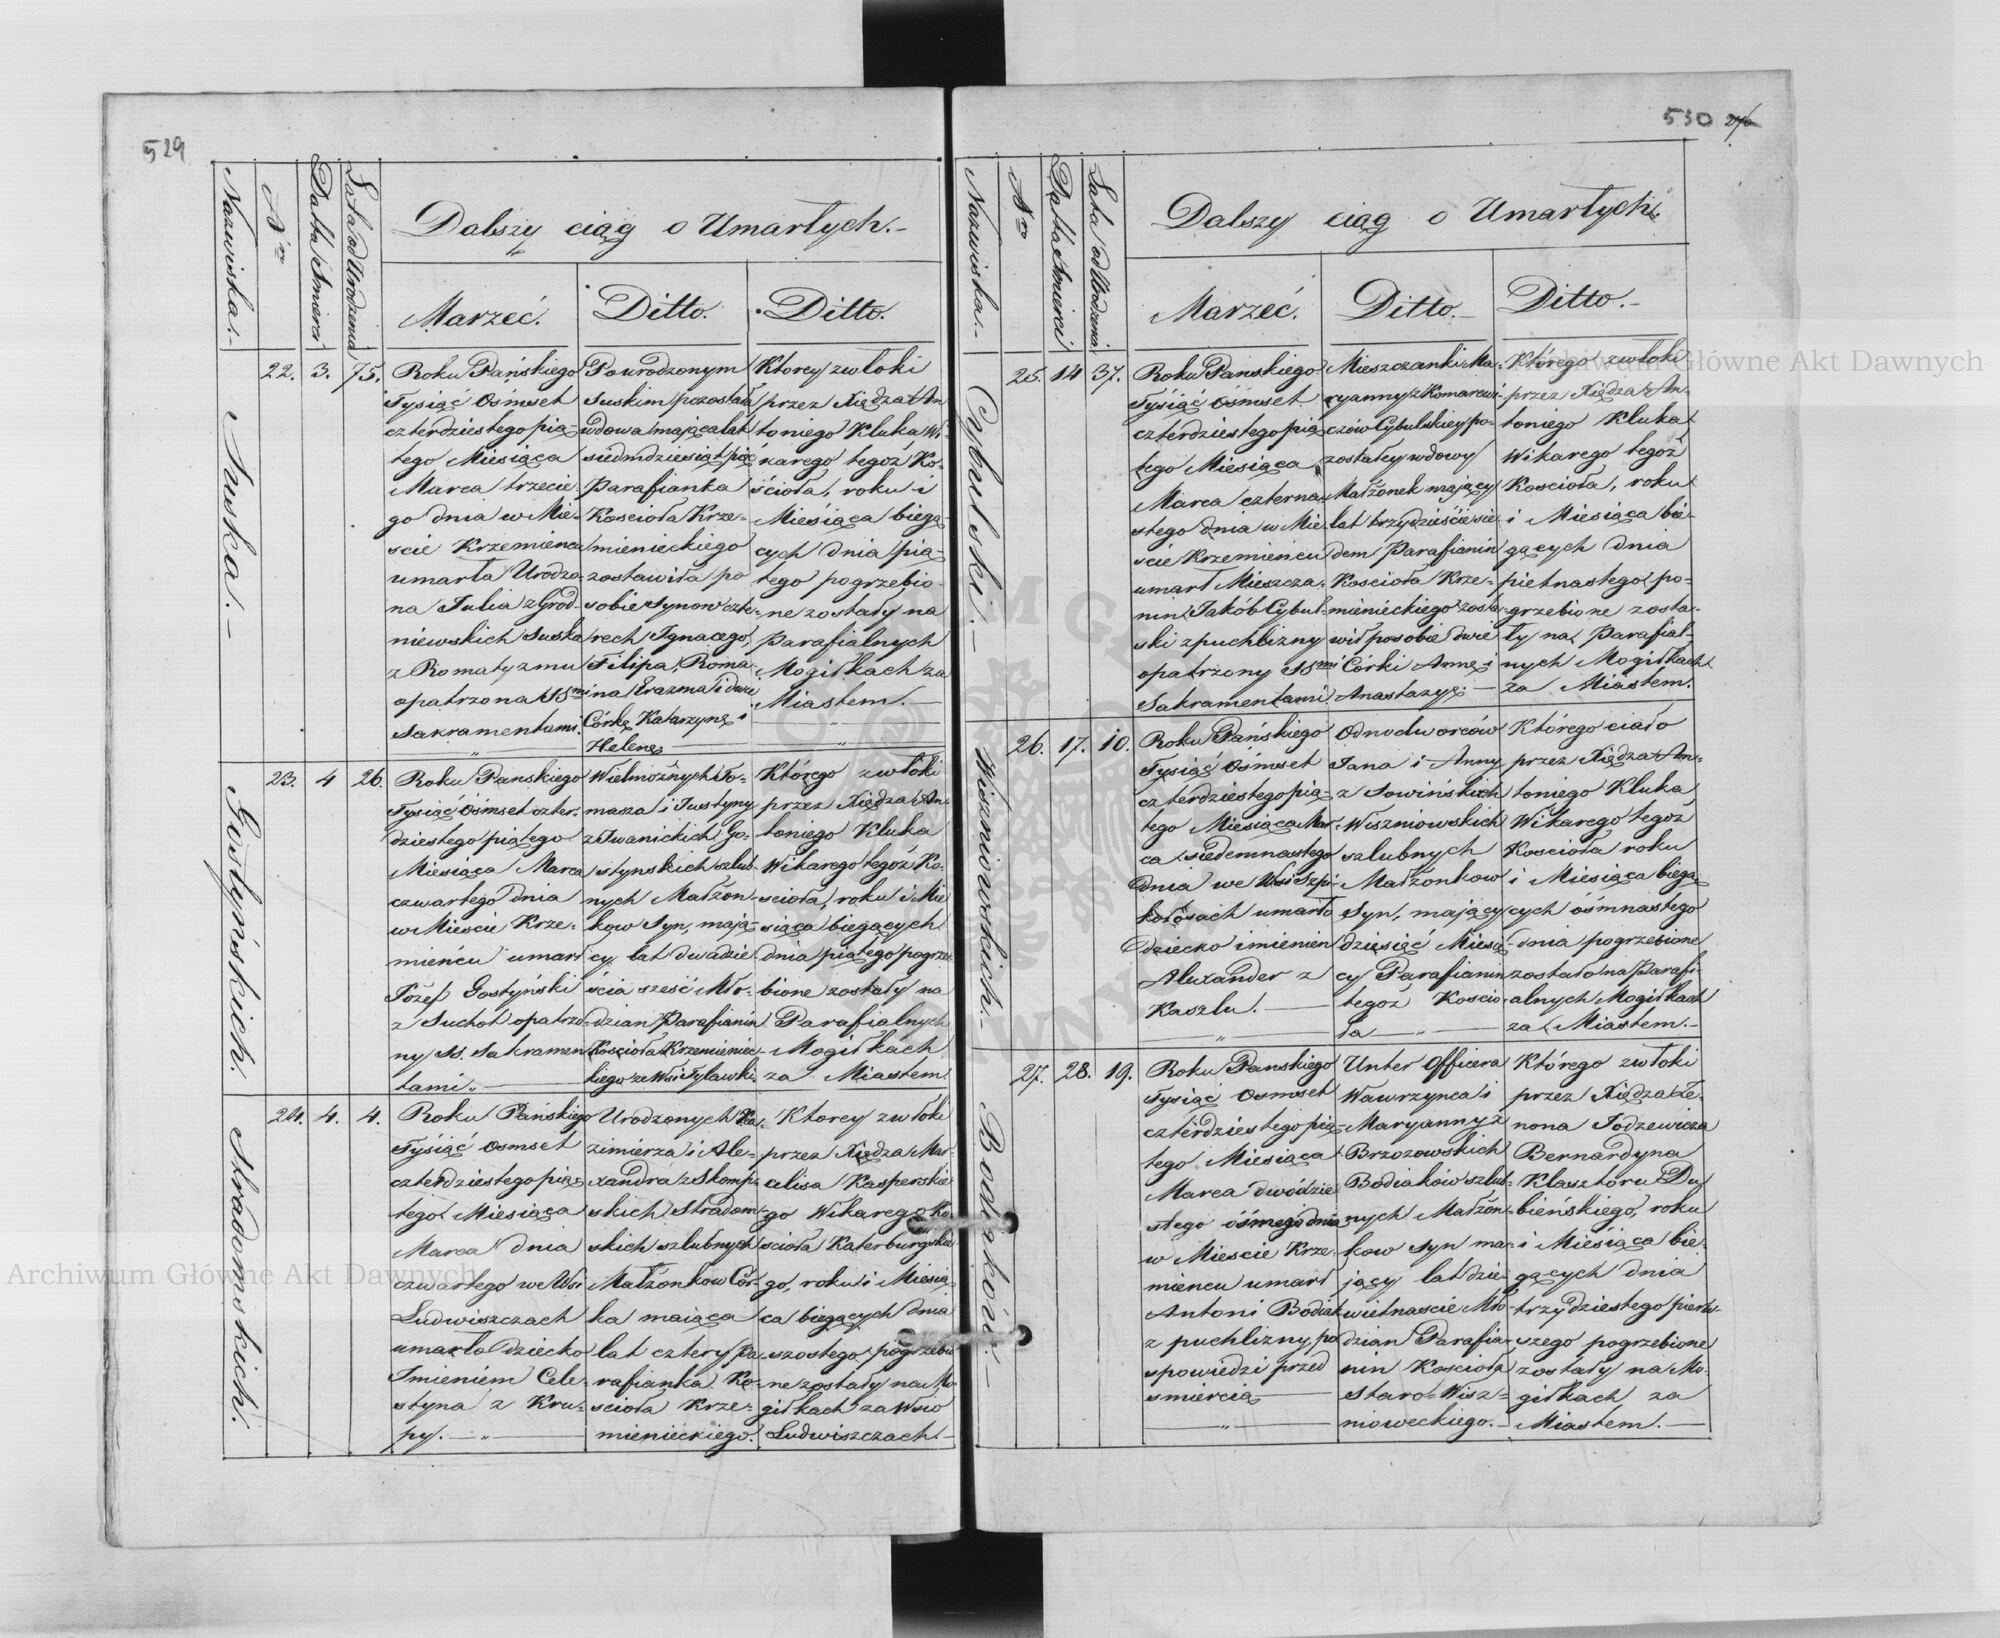 529
Nazwiska.
Nro
Datta Śmierci
Lata od Urodzenia
Dalszy ciąg o Umarłych.
Marzeć.
Ditto.
Ditto.
Suska.
22.
3.
75.
Roku Pańskiego
Tysiąć Osmset
czterdziestego pią-
tego Miesiąca
Marca trzecie-
go dnia w Mie-
scie Krzemiencu
umarła Urodzo-
na Julia z Grod-
niewskich Suska
z Romatyzmu
opatrzona SSmi
Sakramentami.
Po urodzonym
Suskim pozostała
wdowa mająca lat
siedmdziesiąt pięć
Parafianka
Kościoła Krze-
mienieckiego
zostawiła po
sobie Synow czte-
rech Ignacego,
Filipa, Roma-
na Erazma i dwie
Córkę Katarzynę i
Helenę
Ktorey zwłoki
przez Xiędza An
toniego Kluka Wi-
karego tegoż Ko-
ścioła, roku i
Miesiąca biegą
cych dnia pią-
tego pogrzebio
ne zostały na
Parafialnych
Mogiłkach za
Miastem.
Gostyńskich.
23.
4
26.
Roku Panskiego
Tysiąć Ośmset czter-
dziestego piątego
Miesiąca Marca
czwartego dnia
w Mieście Krze-
mieńcu umarł
Józef Gostyński
z Suchot opatrzo-
ny SS. Sakramen
tami.
Wielmożnych To-
masza i Justyny
z Iwanickich Go-
stynskich szlub-
nych Małżon-
kow Syn, mają-
cy lat dwadzie
ścia sześć Mło-
dzian Parafianin
Kościoła Krzemieniec-
kiego ze Wsi Tylawki.
Którego zwłoki
przez Xiędza An-
toniego Kluka
Wikarego tegoż Ko-
scioła, roku i Mie
siąca biegących
dnia piątego pogrze-
bione zostały na
Parafialnych
Mogiłkach
za Miastem.
Stradomskich.
24.
4.
4.
Roku Pańskiego
Tysiąć Osmset
czterdziestego pią-
tego Miesiąca
Marca dnia
czwartego we Wsi
Ludwiszczach
umarło dziecko
Imieniem Cele-
styna z Kru-
py.
Urodzonych Ka-
zimierza i Ale-
xandra z Skomp
skich Stradom-
skich szlubnych
Małżonkow Cór-
ka maiąca
lat cztery Pa-
rafianka Ko-
scioła Krze-
mienieckiego.
Ktorey zwłoki
przez Xiędza Mar-
celisa Kasperskie
go Wikarego Ko-
scioła Katerburgskie-
go, roku i Miesią
ca biegących dnia
szostego pogrzebio
ne zostały na Mo
giłkach za Wsio
Ludwiszczach.
530
276
Nazwiska.
Nro
Datta Śmierci
Lata od Urodzenia
Dalszy ciąg o Umarłych.
Marzeć.
Ditto.
Ditto.
Cybulski.
25.
14
37.
Roku Pańskiego
Tysiąć Ośmset
czterdziestego pią
tego Miesiąca
Marca czterna-
stego dnia w Mie
ście Krzemieńcu
umarł Mieszcza-
nin Jakób Cybul-
ski z puchlizny
opatrzony SSmi
Sakramentami
Mieszczanki Ma-
ryanny z Komarewi-
czów Cybulskiey po-
zostałey wdowy
Małżonek mający
lat trzydzieście sie
dem Parafianin
Kościoła Krze-
mienieckiego zosta-
wił po sobie dwie
Córki Annę i
Anastazyę.
Którego zwłoki
przez Xiędza An-
toniego Kluka
Wikarego tegoż
Kosciola, roku
i Miesiąca bie-
gących dnia
pietnastego po-
grzebione zosta-
ły na Parafial-
nych Mogiłkach
za Miastem.
Wiszniowskich.
26.
17.
10.
Roku Pańskiego
Tysiąć Ośmset
czterdziestego pią-
tego Miesiąca Mar-
ca siedemnastego
dnia we Wsi Szpi-
kołosach umarło
dziecko imienien
Alexander z
Kaszlu.
Odnodworców
Jana i Anny
z Sowińskich
Wiszniowskich
szlubnych
Małżonkow
Syn, mający
dziesięć Miesię-
cy Parafianin
tegoż Koscio
ła
Którego ciało
przez Xiędza An-
toniego Kluka
Wikarego tegoż
Kosciola roku
i Miesiąca biegą
cych ośmnastego
dnia pogrzebione
zostało na Parafi-
alnych Mogiłkach
za Miastem.
Bodiaków.
27.
28.
19.
Roku Panskiego
Tysiąć Osmset
czterdziestego pią-
tego Miesiąca
Marca dwódzie
stego ósmego dnia
w Miescie Krze-
miencu umarł
Antoni Bodiak
z puchlizny, po
spowiedzi przed
smiercią
Unter Officera
Wawrzynca i
Maryanny z
Brzozowskich
Bodiaków szlub-
nych Małżon-
kow Syn ma-
jący lat dzie-
wietnascie Mło-
dzian Parafia-
nin Kościoła
Staro-Wisz-
nioweckiego.
Którego zwłoki
przez Xiędza Ze-
nona Todzewicza
Bernardyna
Klasztóru Du
bieńskiego, roku
i Miesiąca bie-
gących dnia
trzydziestego pierw-
szego pogrzebione
zostały na Mo-
giłkach za
Miastem.
Archiwum Główne Akt Dawnych
Archiwum Główne Akt Dawnych